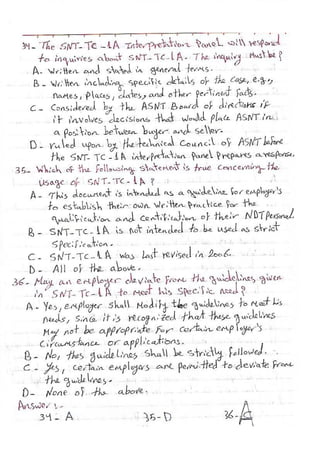 34- The SNT-TC-1A Interpretation Panel will respond
to inquiries about SNT-TC-1A. The inquiry Must be?
A. Written and stated in general terms.
B - Written including specific details of the case, e.g,
names, places, dates, and other pertinent facts.
C - Considered by the ASNT Board of directors if
it involves decisions that would place ASNT in
a position between buyer and seller-
D - ruled upon by the technical Council of ASNT before
the SNT-TC-1A interpretation Panel Prepares a response.
35- Which of the Following Statement is true concerning the
Usage of SNT-TC-1A?
A - This document is intended as a guideline for employer's
to establish their own Written Practice for the
qualification and certification of their NDT Personal
B - SNT-TC-1A is not intended to be used as strict
Specification.
C - SNT-TC-1A was last revised in 2006
D - All of the above.
36- May an employer deviate From the guidelines given
in SNT-TC-1A to meet his Specific need?
A - Yes, employer Shall Modify the guidelines to meet his
needs, Since it is recognized that these guidelines
May not be appropriate For certain employer's
Circumstance or applications.
B - No, thes guidelines Shall be Strictly Followed.
C - Yes, certain employers are permitted to deviate From
the guidelines-
D - None of the above.
Answer :-
34- A 35-D 36-